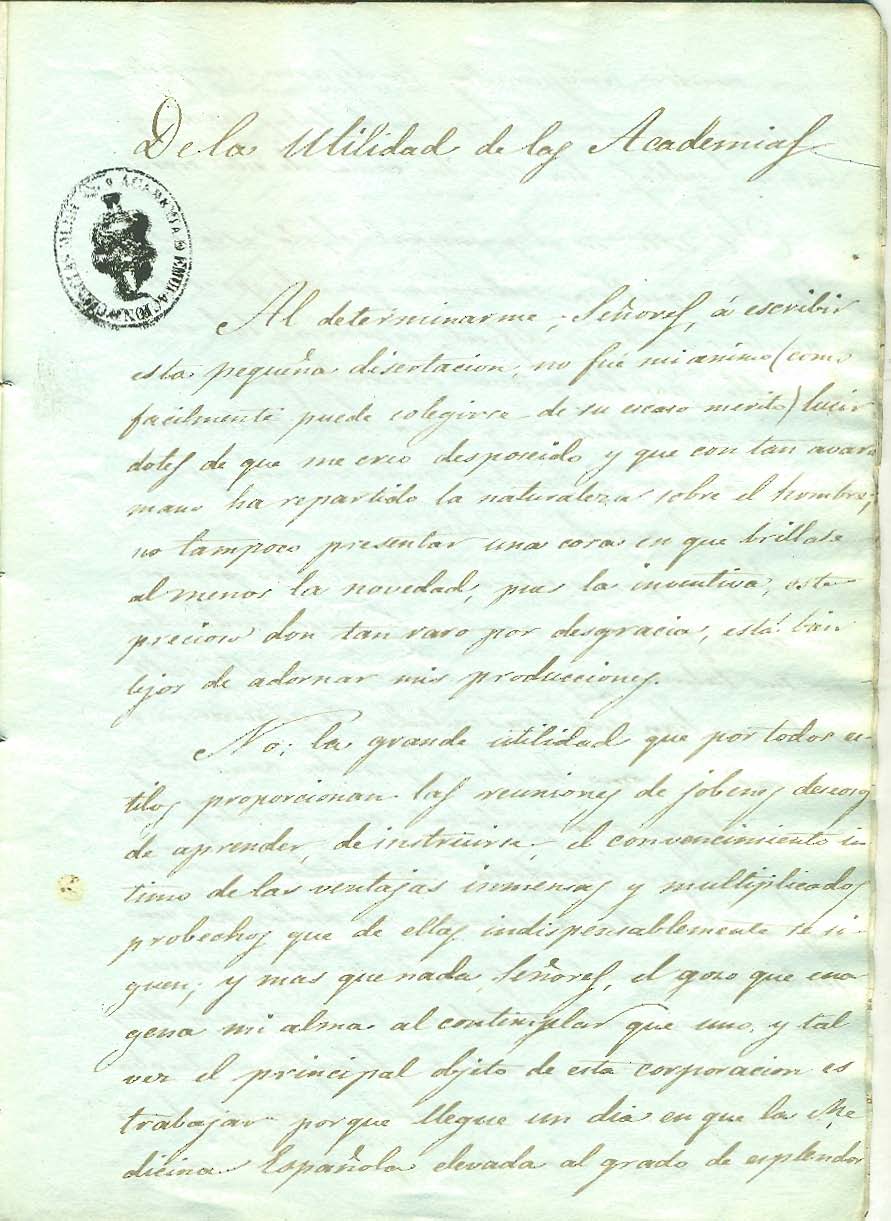 De la Utilidad de las Academias
ACADEMIA D EMULACION D CIENCIAS
Al determinarme, Señores, á escribir
esta pequeña disertacion, no fué mi animo (como
facilmente puede colegirse de su escaso merito) lucir
dotes de que me creo desposeido y que con tan avara
mano ha repartido la naturaleza sobre el hombre;
no tampoco presentar una cosa en que brillase
al menos la novedad, pues la inventiva, este
precioso don tan raro por desgracia, está bien
lejos de adornar mis producciones.
No; la grande utilidad que por todos es-
tilos proporcionan las reuniones de jobenes deseosos
de aprender, de instruirse, el convencimiento in
timo de las ventajas inmensas y multiplicados
probechos que de ellas indispensablemente se si-
guen; y mas que nada, Señores, el gozo que ena
gena mi alma al contemplar que uno, y tal
vez el principal objeto de esta corporacion es
trabajar porque llegue un dia en que la Me
dicina Española elevada al grado de esplendor